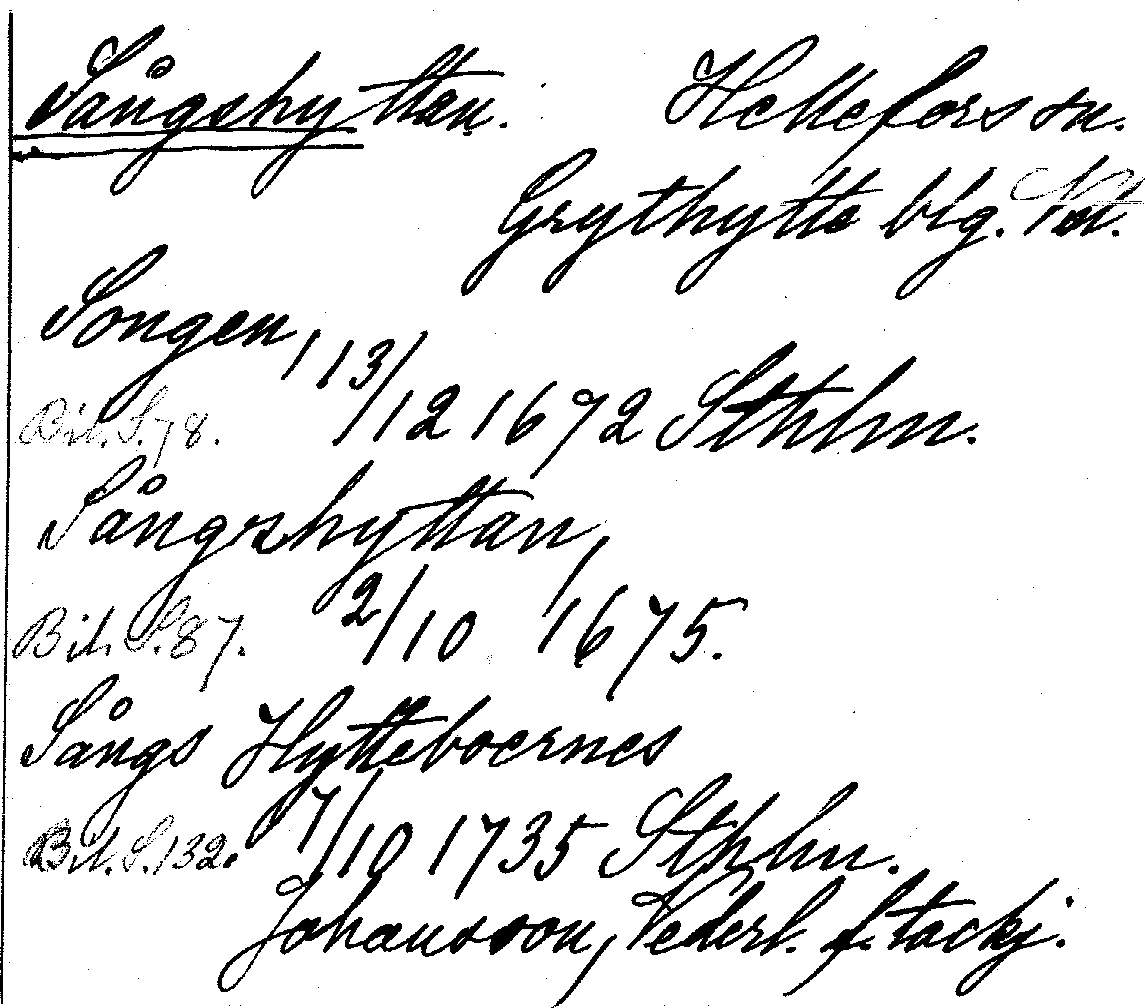 Sångshyttan. Hellefors sn.
Grythytte blg.
Songen, 13/12 1672 Sthlm.
Bil. S. 78.
Sångshyttan,
Bih. S. 87. 2/10 1675.
Sångs Hytteboernes
Bil. S. 132. 7/10 1735 Sthlm.
Johansson, Vederl. f. tackj.